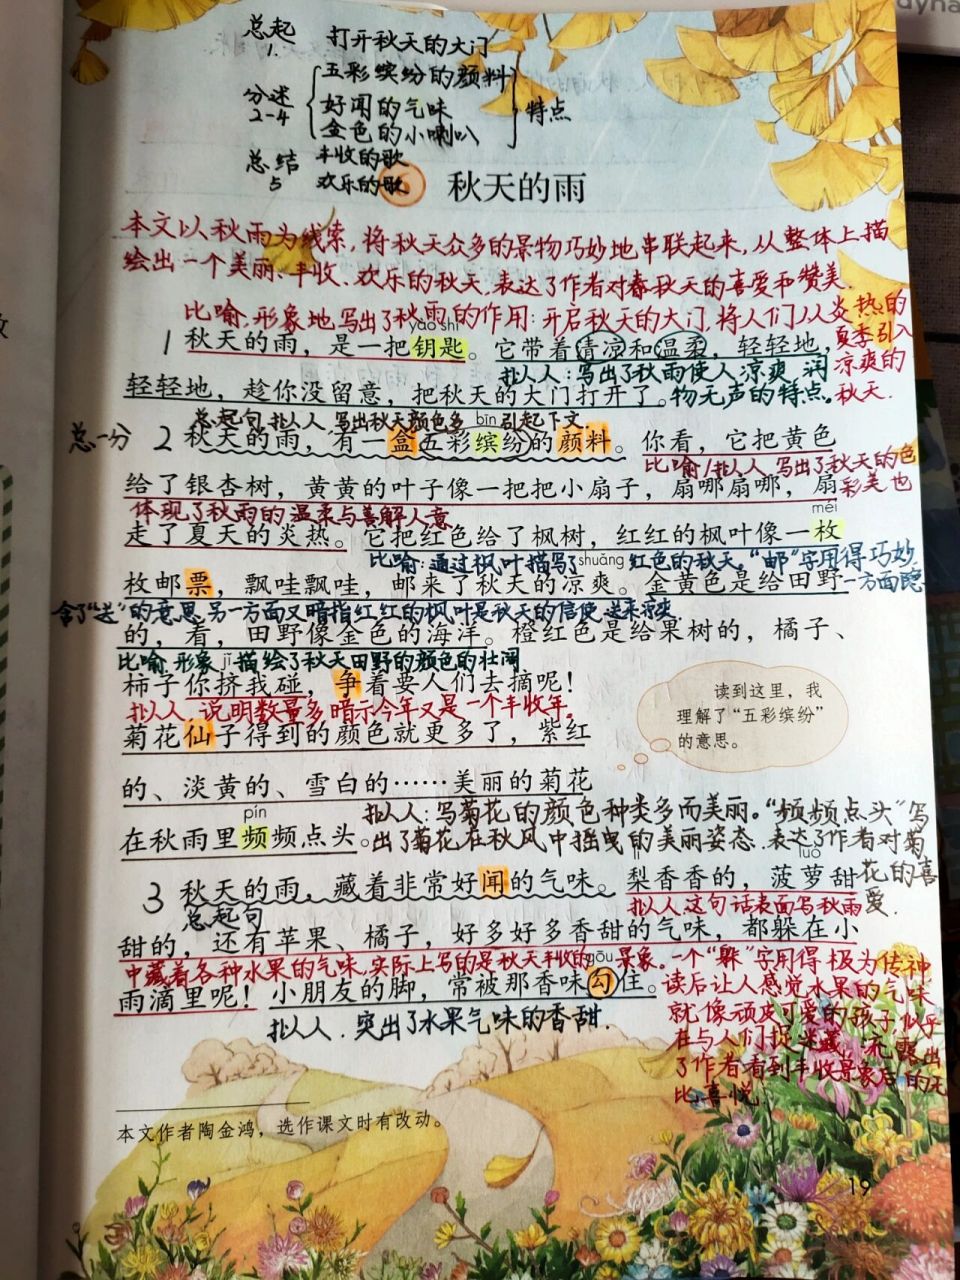 总起 打开秋天的大门
1.
五彩缤纷的颜料
分述 好闻的气味 特点
2-4 金色的小喇叭
总结 丰收的歌
5 欢乐的歌
6 秋天的雨
本文以秋雨为线索,将秋天众多的景物巧妙地串联起来,从整体上描
绘出一个美丽、丰收、欢乐的秋天,表达了作者对春秋天的喜爱和赞美.
比喻,形象地写出了秋雨的作用:开启秋天的大门,将人们从炎热的
夏季引入
凉爽的
秋天.
yào shi
1 秋天的雨,是一把钥匙。它带着清凉和温柔,轻轻地,
拟人:写出了秋雨使人凉爽、润
轻轻地,趁你没留意,把秋天的大门打开了。物无声的特点。
总起句,拟人 写出秋天颜色多 引起下文.
bīn
总—分 2 秋天的雨,有一盒五彩缤纷的颜料。你看,它把黄色
比喻/拟人 写出了秋天的色
彩美 也
给了银杏树,黄黄的叶子像一把把小扇子,扇哪扇哪,扇
体现了秋雨的温柔与善解人意
méi
走了夏天的炎热。它把红色给了枫树,红红的枫叶像一枚
比喻:通过枫叶描写了红色的秋天."邮"字用得巧妙
shuāng
枚邮票,飘哇飘哇,邮来了秋天的凉爽。金黄色是给田野
一方面隐
含了"送"的意思 另一方面又暗指红红的枫叶是秋天的信使
的,看,田野像金色的海洋。橙红色是给果树的,橘子、
比喻 形象 描绘了秋天田野的颜色的壮阔.
jǐ
柿子你挤我碰,争着要人们去摘呢!
拟人 说明数量多,暗示今年又是一个丰收年。
菊花仙子得到的颜色就更多了,紫红
的、淡黄的、雪白的……美丽的菊花
pín
在秋雨里频频点头。
拟人:写菊花的颜色种类多而美丽."频频点头"写
出了菊花在秋风中摇曳的美丽姿态.表达了作者对菊
花的喜
爱.
读到这里,我
理解了"五彩缤纷"
的意思。
lí luó
3 秋天的雨,藏着非常好闻的气味。梨香香的,菠萝甜
总起句
拟人 这句话表面写秋雨
甜的,还有苹果、橘子,好多好多香甜的气味,都躲在小
中藏着各种水果的气味,实际上写的是秋天丰收的景象.一个"躲"字用得极为传神
gōu
雨滴里呢!小朋友的脚,常被那香味勾住。
读后让人感觉水果的气味
就像顽皮可爱的孩子似乎
在与人们捉迷藏 流露出
了作者看到丰收景象后的无
比喜悦
拟人.突出了水果气味的香甜.
本文作者陶金鸿,选作课文时有改动。
19